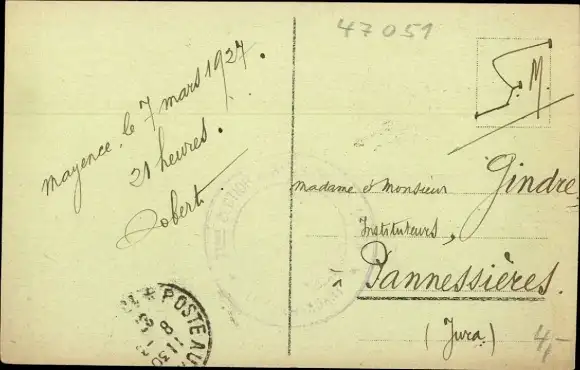 47051
Mayence, le 7 mars 1927.
21 heures.
Robert
F.M.
Madame & Monsieur Gindre
Instituteurs,
à Pannessières.
(Jura)
4,-
POSTE AUX
1130
8